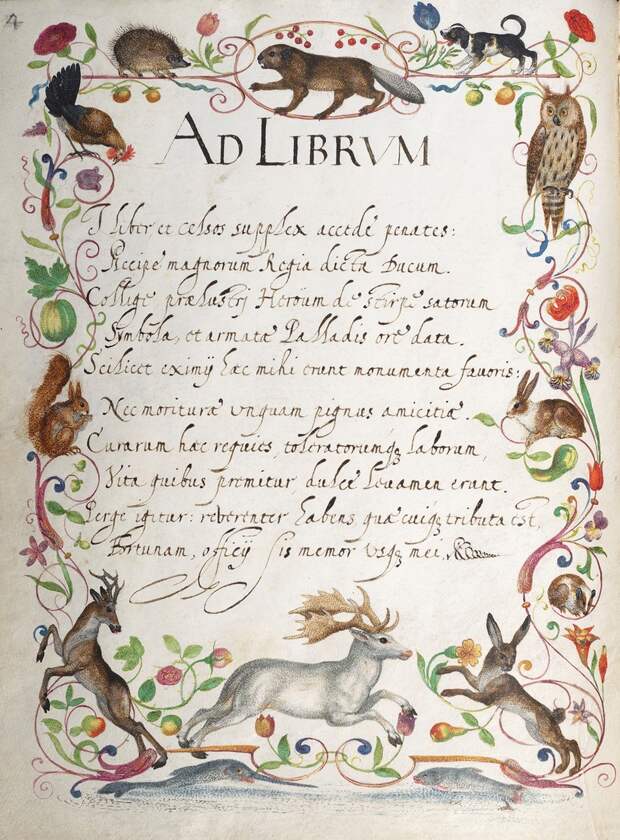 4
AD LIBRVM
I liber et celsos supplex accede penates:
Accipe magnorum Regia dicta Ducum.
Collige prælustrj Heroum de stirpe satorum
Symbola, et armatæ Palladis ore data.
Scilicet eximij hæc mihi erunt monumenta favoris:
Nec morituræ vnquam pignus amicitiæ.
Curarum hæc requies, toleratorumqȝ laborum,
Vita quibus premitur, dulce levamen erunt.
Perge igitur: reverenter habens, quæ cuiqȝ tributa est,
Fortunam, officij sis memor vsqȝ mei.